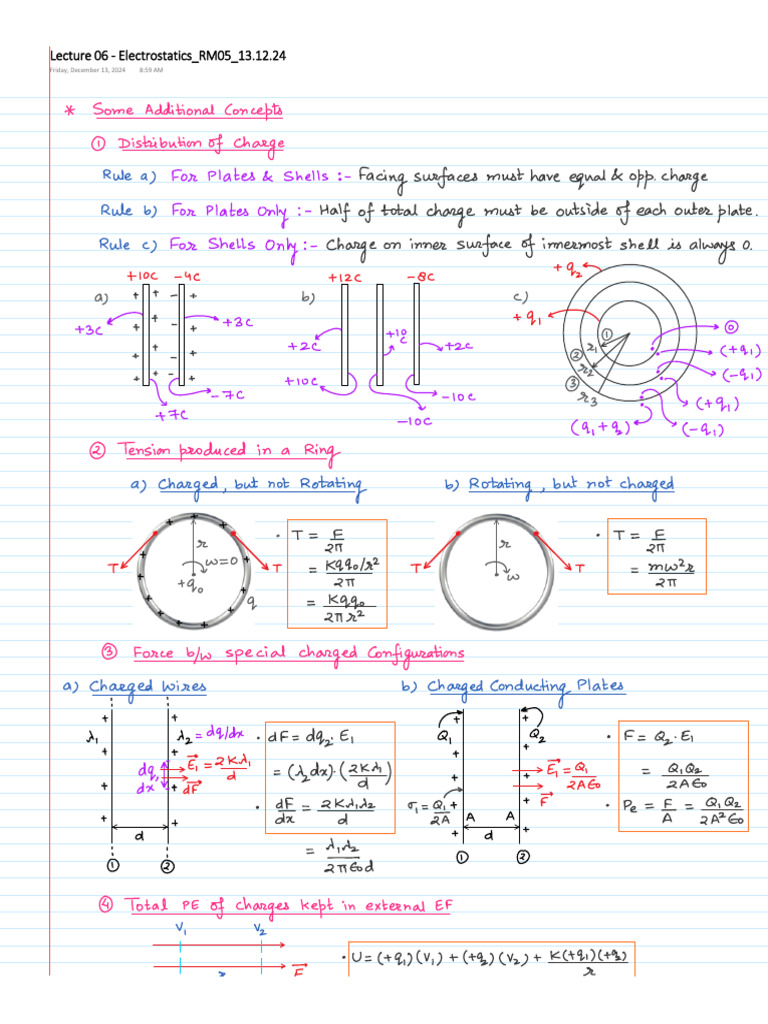 Lecture 06 - Electrostatics_RM05_13.12.24
Friday, December 13, 2024 8:59 AM
* Some Additional Concepts
① Distribution of Charge
Rule a) For Plates & Shells :- Facing surfaces must have equal & opp. charge
Rule b) For Plates Only :- Half of total charge must be outside of each outer plate.
Rule c) For Shells Only :- Charge on inner surface of innermost shell is always 0.
a) +10C -4C
+3C +3C
-7C
+7C
b) +12C -8C
+2C +10C +2C
+10C -10C
-10C
c) +q₂
+q₁
① r₁
② r₂
③ r₃
⓪
(+q₁)
(-q₁)
(+q₁)
(q₁+q₂) (-q₁)
② Tension produced in a Ring
a) Charged, but not Rotating b) Rotating, but not charged
r ω=0 +q₀ q T T
· T = F/2π
= Kqq₀/r²/2π
= Kqq₀/2πr²
r ω T T
· T = F/2π
= mω²r/2π
③ Force b/w special charged Configurations
a) Charged Wires b) Charged Conducting Plates
λ₁ λ₂ = dq/dx
dq₂ dx E₁⃗ = 2Kλ₁/d
dF⃗
d
① ②
· dF = dq₂·E₁
= (λ₂dx)·(2Kλ₁/d)
· dF/dx = 2Kλ₁λ₂/d
= λ₁λ₂/2π∈₀d
Q₁ Q₂
E₁⃗ = Q₁/2A∈₀
F⃗
σ₁ = Q₁/2A A A
d
① ②
· F = Q₂·E₁
= Q₁Q₂/2A∈₀
· Pe = F/A = Q₁Q₂/2A²∈₀
④ Total PE of charges kept in external EF
V₁ V₂
· U = (+q₁)(V₁) + (+q₂)(V₂) + K(+q₁)(+q₂)/r